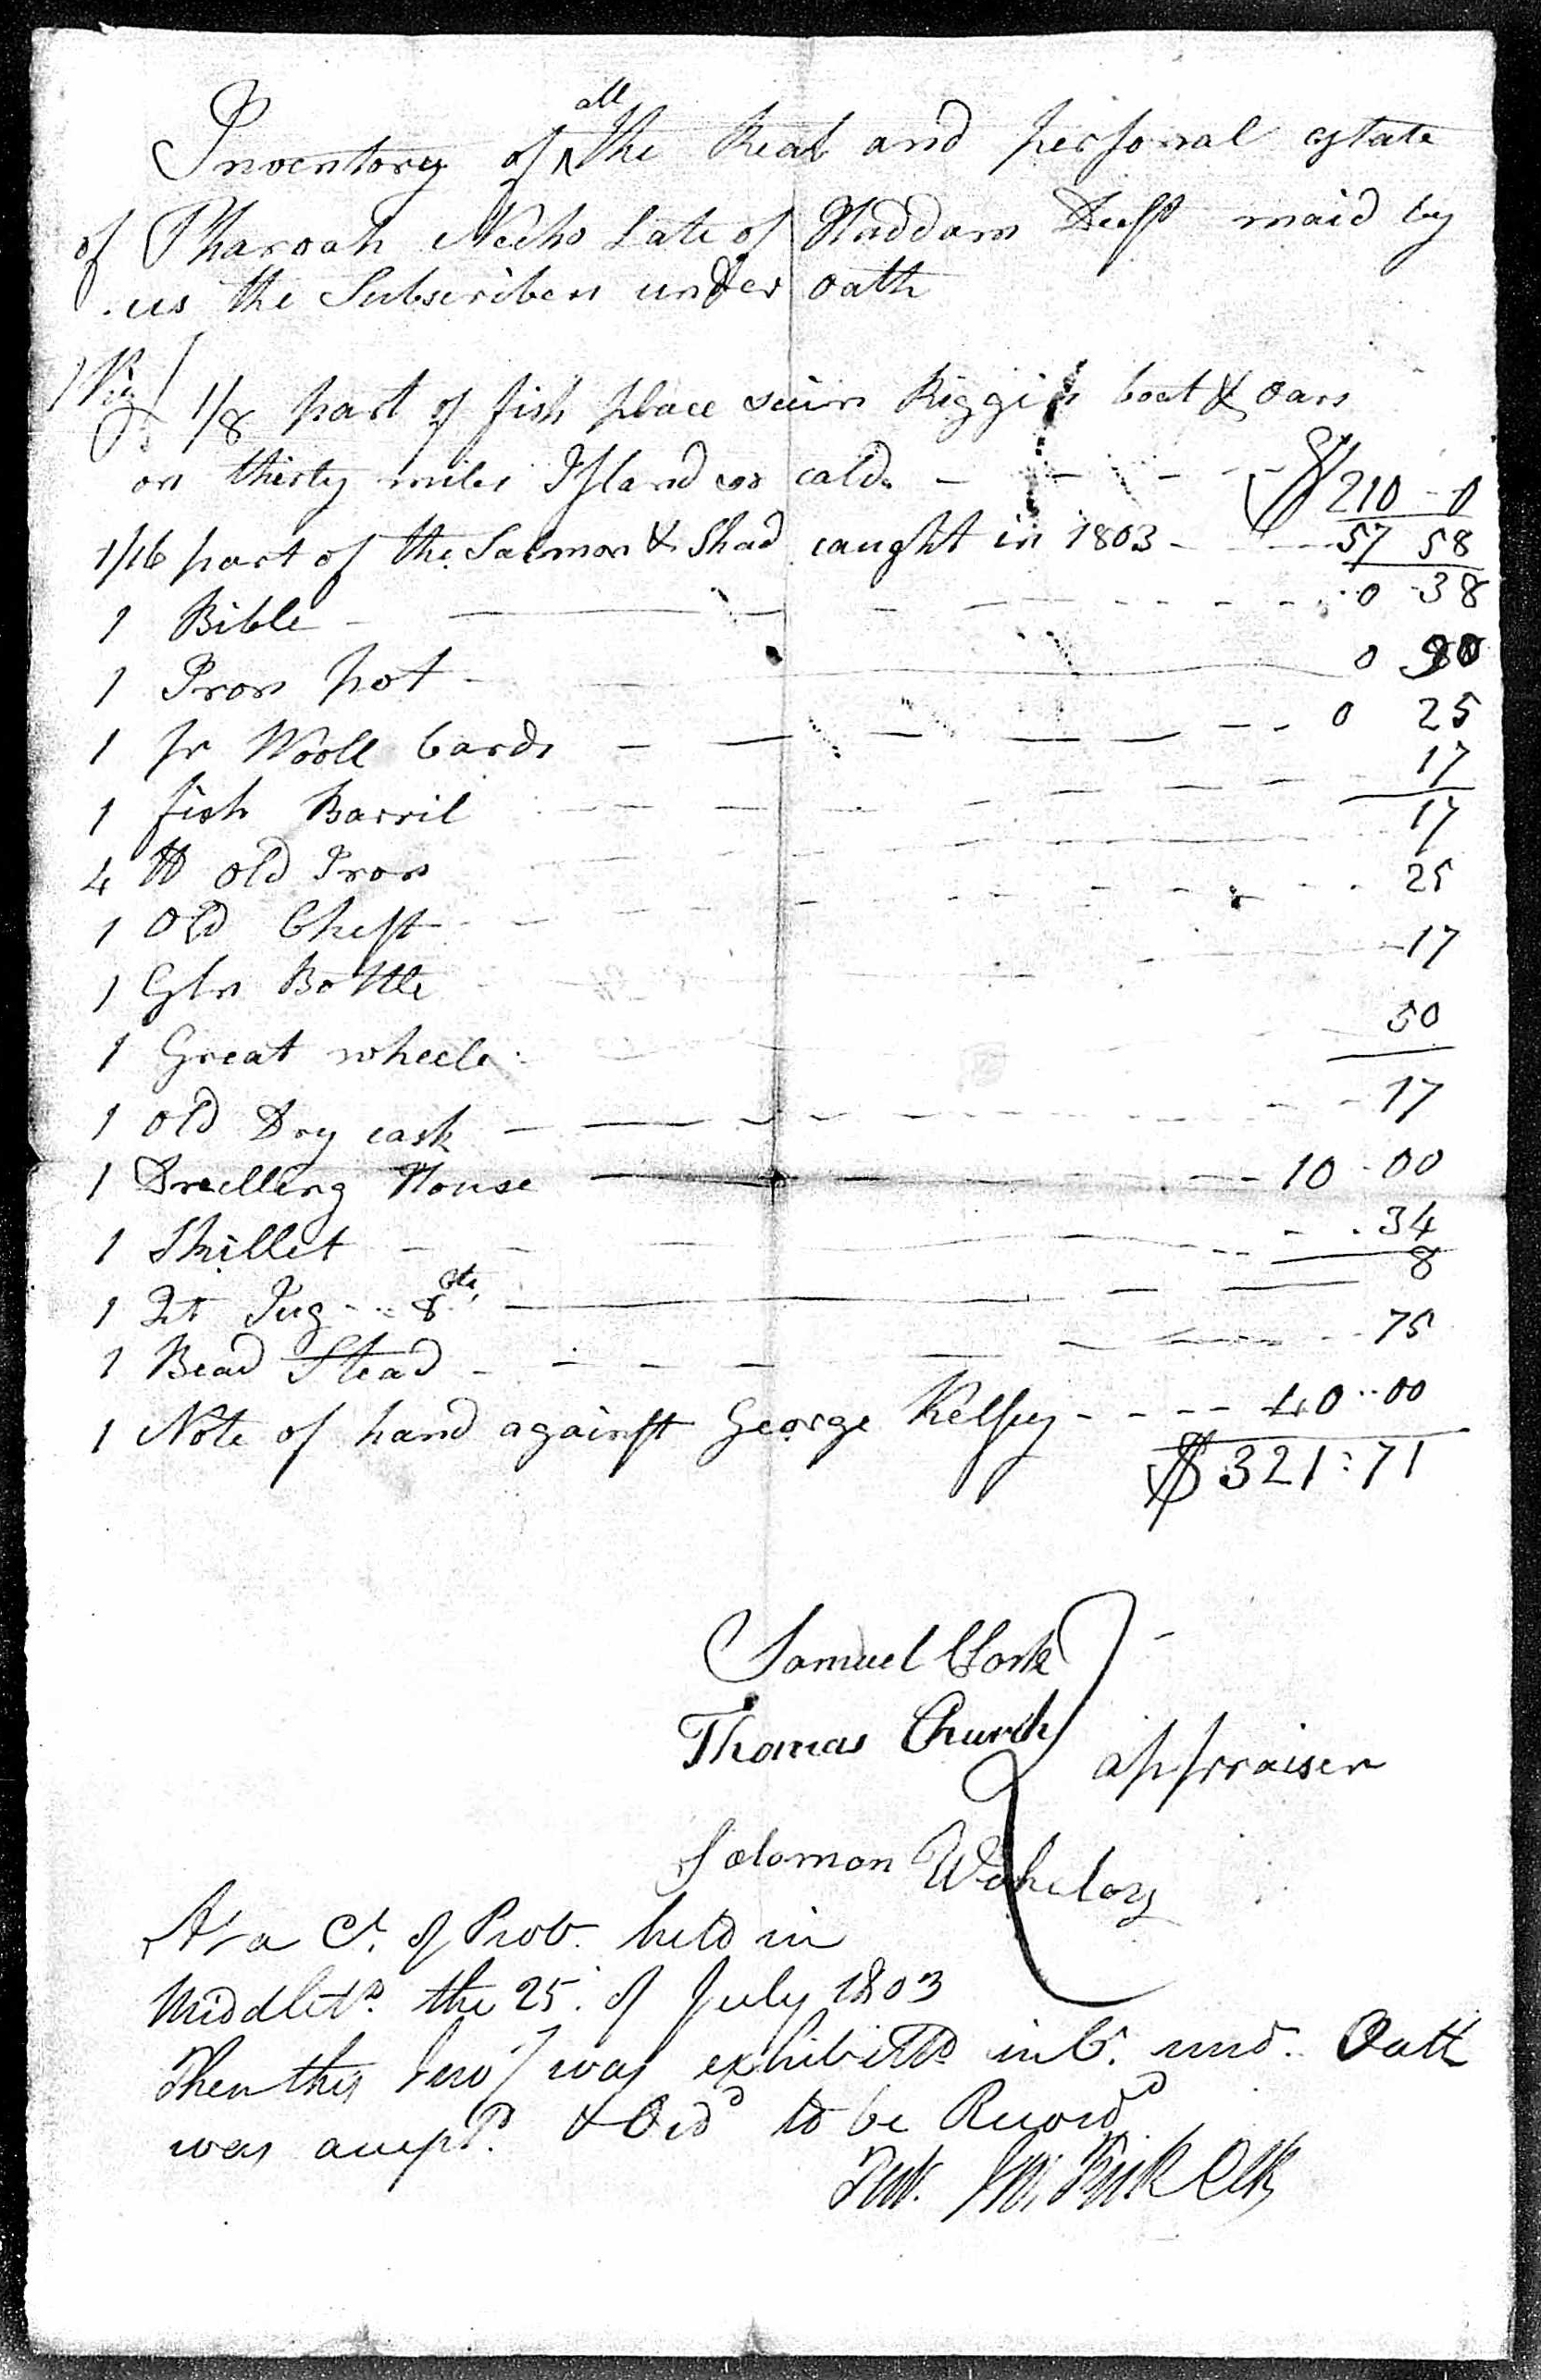 Inventory of all the Real and personal estate
of Pharoah Necho Late of Haddam Desd maid by
us the Subscribers under oath
Viz 1/8 part of fish place sein Riggin boat & Oars
on thirty miles Island so cald - - - - $210-0
1/16 part of the Salmon & Shad caught in 1803 - - 57 58
1 Bible - - - 0-38
1 Iron pot - - - 0 90
1 pr Wooll Cards - - - 0 25
1 fish Barril - - - 17
4 lb old Iron - - - 17
1 Old Chest - - - 25
1 Gln Bottle - - - 17
1 Great wheele - - - 50
1 old Dry cask - - - 17
1 Dwelling House - - - 10-00
1 Skillet - - - 34
1 2t Jug - - 8 cts - - - 8
1 Bead Stead - - - 75
1 Note of hand against George Kelsey - - - - 40-00
$321:71
Samuel Clark
Thomas Church
appraisers
Solomon Wakeley
At a Ct. of Prob. held in
Middletn. the 25. of July 1803
Then this Invy was exhibittd in Ct. und. Oath
was accept. & Ordd to be Recordd
Test. Clk